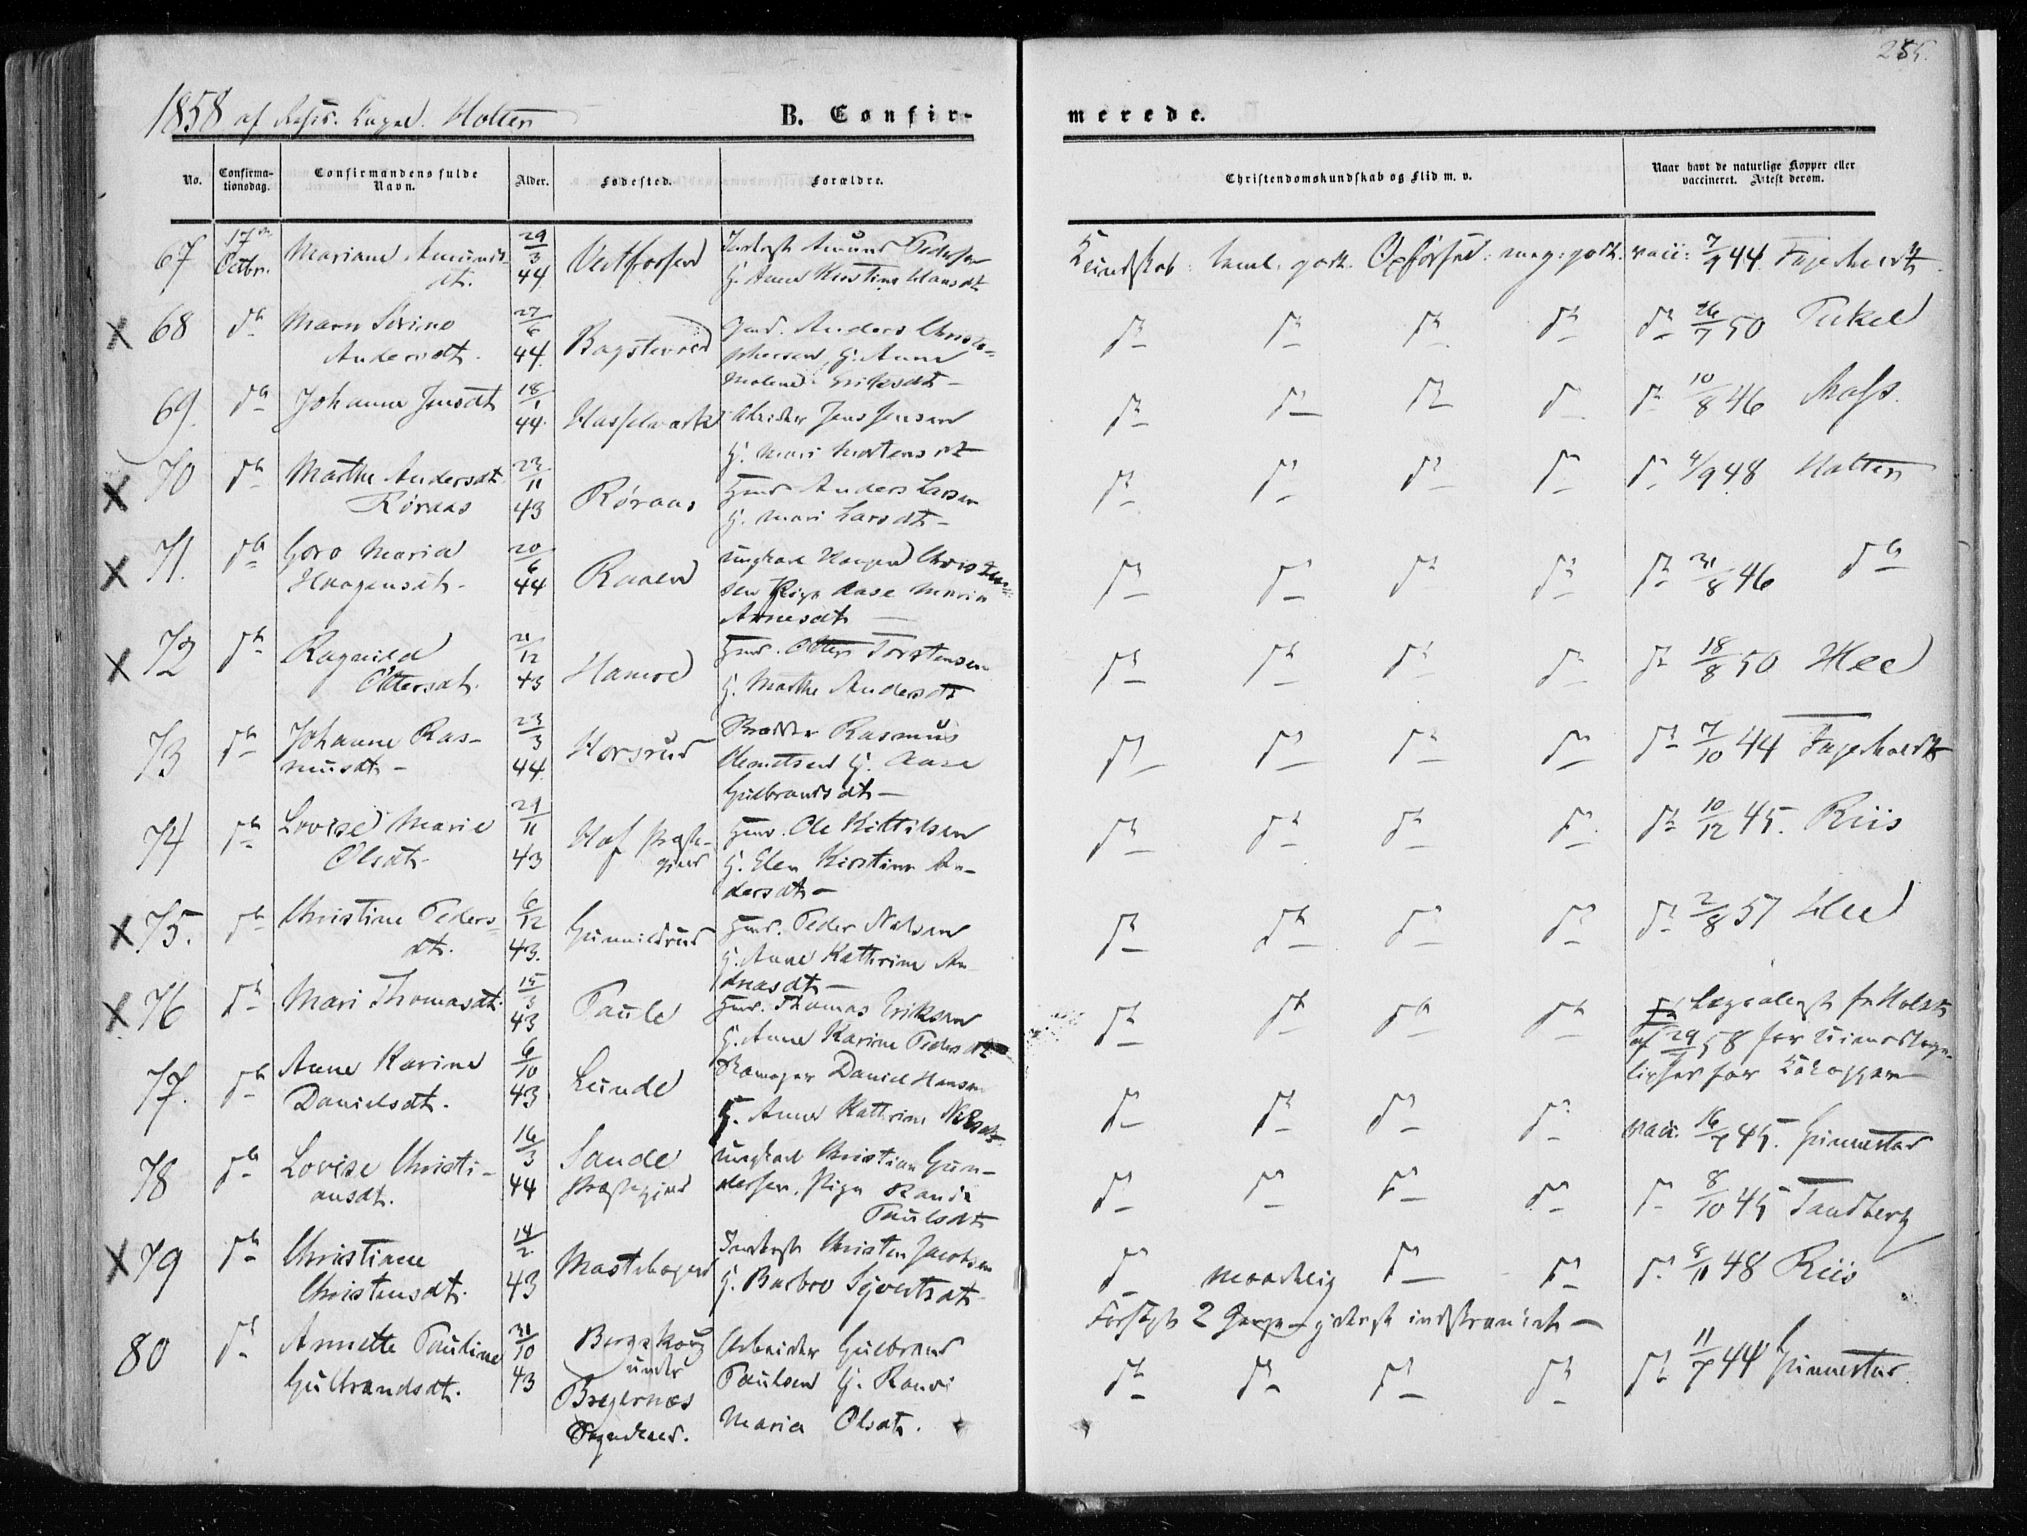 255.
1858 af Holter
B. Confir-
merede.
No.
Confirma-
tionsdag.
Confirmandens fulde
Navn.
Alder.
Fødested.
Forældre.
Christendomskundskab og Flid m. v.
Naar havt de naturlige Kopper eller
vaccineret. Attest derom.
67 17de Octbr. Mariane Amunds-
dt. 29/3 44 Vestfossen Inderst Amund Pedersen
H. Anne Kirstine Hansdt
Kundskab: taml. godt. Opførsel: meg. godt. vacc: 7/9 44 Fagerholdt
X 68 do Maren Sirine
Andersdt. 27/6 44. Gmd. Anders Christo-
phersen, H. Anne
Malene Eriksdt
do do do do do 26/7 50 Tukel
69. do Johanne Jensdt 18/1 44 Arbeider Jens Jensen
H. Mari Mortensdt
do do do do do 10/8 46
X 70 do Marthe Andersdt.
Røraas 22/11 43 Røraas Gmd. Anders Larsen
H. Mari Larsdt
do do do do do 4/9 48 Holter
X 71. do Goro Maria
Haagensdt. 20/6 44 Raaen Ungkarl Haagen Christen-
sen Pige Aase Maria
Arnesdt
do do do do do 31/8 46 do
X 72 do Ragnild
Ottersdt. 21/12 43 Hamre Gmd. Otter Torstensen
H. Marthe Andersdt
do do do do do 18/8 50 Hee
73 do Johanne Ras-
musdt 23/3 44 Horsrud Rasmus
H. Aase
Gulbrandsdt
do do do do do 7/10 44 Fagerholdt
74 do Lovise Marie
Olsdt. 29/11 43 Hof Præste-
gjeld Gmd. Ole Kittilsen
H. Elen Kirstine An-
dersdt
do do do do do 10/12 45. Riis
X 75. do Christine Peders-
dt. 6/12 43. Gunnildrud Gmd. Peder Nelsen
H. Anne Kathrine An-
dreasdt
do do do do do 2/8 57 Hee
X 76 do Mari Thomasdt. 15/3 43 Paule Gmd. Thomas Eriksen
H. Anne Karine Pedersdt
do do do do Lægeattest fr. Holst
af 29/ 58 for
for Kokopper
77. do Anne Karine
Danielsdt. 6/10 43 Lunde Daniel Hansen
H. Anne Kathrine Nilsdt.
do do do do vacc. 16/7 45. Ginnestad
78 do Lovise Christi-
ansdt. 16/3 44 Sande
Præstegjeld Ungkarl Christian Gun-
dersen, Pige Randi
Paulsdt
do do do do do 8/10 45 Tandberg
X 79 do Christiane
Christensdt. 14/2 43 Mastehagen Inderst Christen Jacobsen
H. Barbro Sjovertsdt
do maadelig do do do 8/11 48 Riis
Forsøgt 2 Gange
80 do Annette Pauline
Gulbrandsdt. 31/10 43 Bergskoug
under
Bragernæs
Sognekald. Arbeider Gulbrand
Paulsen H. Randi
Maria Olsdt.
do do do do do 11/7 44 Ginnestad.